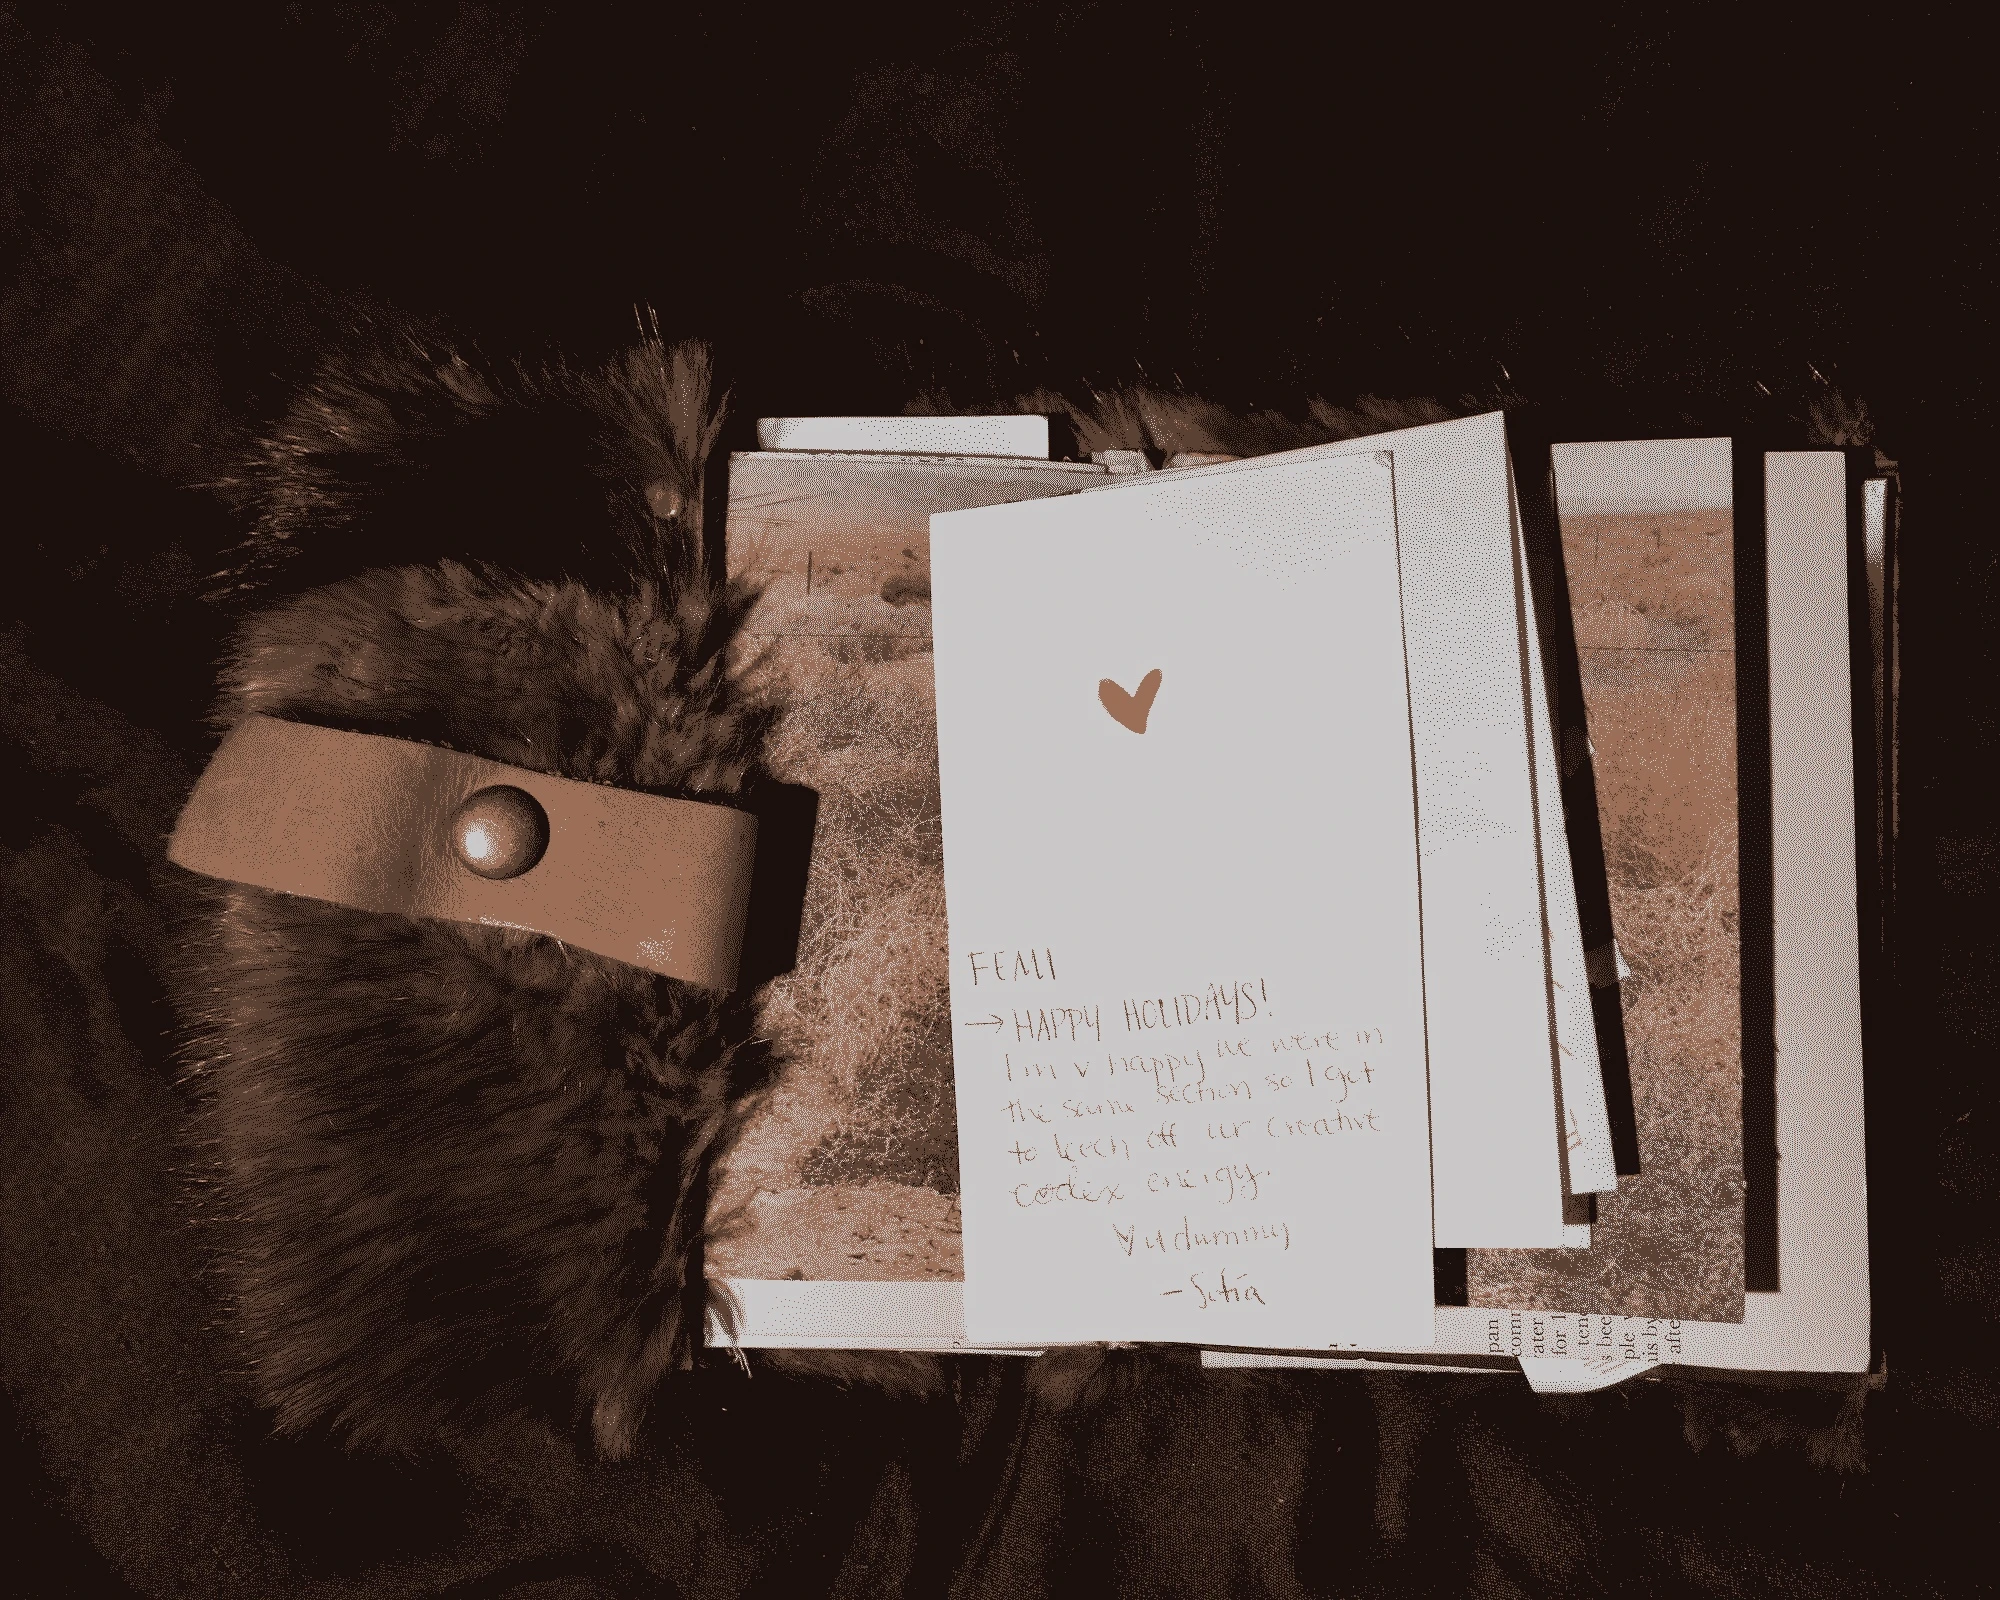 FEMI
→ HAPPY HOLIDAYS!
I'm v happy we were in
the same section so I got
to leech off ur creative
codex energy.
u dummy
- Sofia
pan
com
ater
for 1
ten
s bee
ple
his by
afte